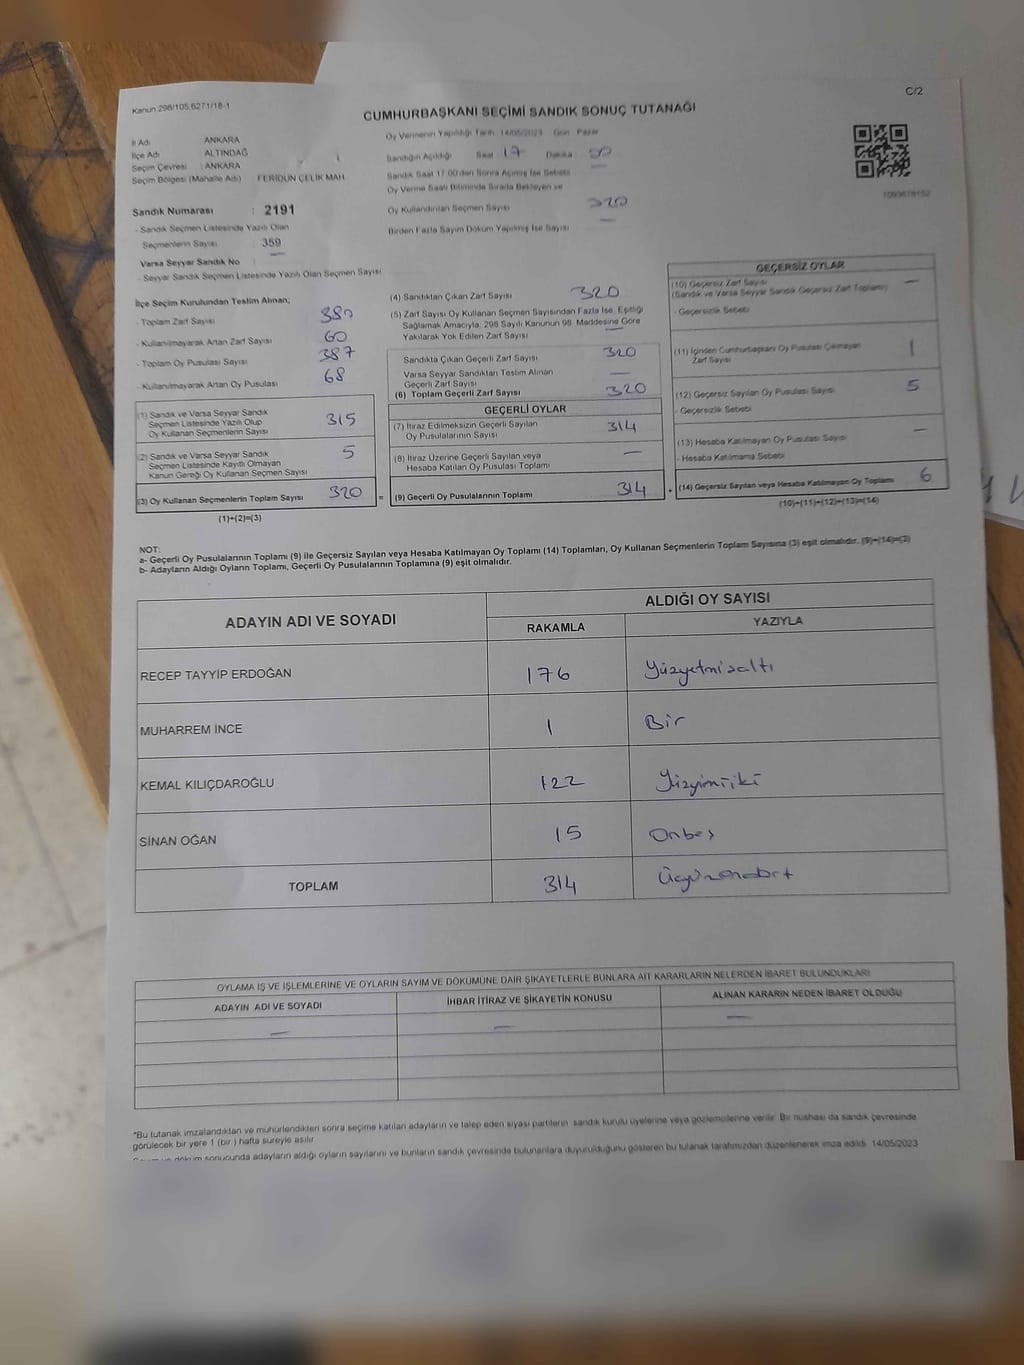 Kanun 298/105,6271/18-1
C/2
CUMHURBAŞKANI SEÇİMİ SANDIK SONUÇ TUTANAĞI
İl Adı : ANKARA
İlçe Adı : ALTINDAĞ
Seçim Çevresi : ANKARA
Seçim Bölgesi (Mahalle Adı) FERİDUN ÇELİK MAH.
Sandık Numarası : 2191
- Sandık Seçmen Listesinde Yazılı Olan
Seçmenlerin Sayısı : 359
Varsa Seyyar Sandık No —
- Seyyar Sandık Seçmen Listesinde Yazılı Olan Seçmen Sayısı
Oy Vermenin Yapıldığı Tarih 14/05/2023 Gün Pazar
Sandığın Açıldığı Saat 17 Dakika
Sandık Saat 17:00'den Sonra Açılmış İse Sebebi —
Oy Verme Saati Bitiminde Sırada Bekleyen ve
Oy Kullandırılan Seçmen Sayısı 320
Birden Fazla Sayım Döküm Yapılmış İse Sayısı —
1090678152
İlçe Seçim Kurulundan Teslim Alınan;
- Toplam Zarf Sayısı 380
- Kullanılmayarak Artan Zarf Sayısı 60
- Toplam Oy Pusulası Sayısı 387
- Kullanılmayarak Artan Oy Pusulası 68
(1) Sandık ve Varsa Seyyar Sandık
Seçmen Listesinde Yazılı Olup
Oy Kullanan Seçmenlerin Sayısı 315
(2) Sandık ve Varsa Seyyar Sandık
Seçmen Listesinde Kayıtlı Olmayan
Kanun Gereği Oy Kullanan Seçmen Sayısı 5
(3) Oy Kullanan Seçmenlerin Toplam Sayısı 320 =
(1)+(2)=(3)
(4) Sandıktan Çıkan Zarf Sayısı 320
(5) Zarf Sayısı Oy Kullanan Seçmen Sayısından Fazla İse, Eşitliği
Sağlamak Amacıyla, 298 Sayılı Kanunun 98. Maddesine Göre
Yakılarak Yok Edilen Zarf Sayısı —
Sandıkta Çıkan Geçerli Zarf Sayısı 320
Varsa Seyyar Sandıktan Teslim Alınan
Geçerli Zarf Sayısı —
(6) Toplam Geçerli Zarf Sayısı 320
GEÇERLİ OYLAR
(7) İtiraz Edilmeksizin Geçerli Sayılan
Oy Pusulalarının Sayısı 314
(8) İtiraz Üzerine Geçerli Sayılan veya
Hesaba Katılan Oy Pusulası Toplamı —
(9) Geçerli Oy Pusulalarının Toplamı 314 +
GEÇERSİZ OYLAR
(10) Geçersiz Zarf Sayısı —
(Sandık ve Varsa Seyyar Sandık Geçersiz Zarf Toplamı)
- Geçersizlik Sebebi
(11) İçinden Cumhurbaşkanı Oy Pusulası Çıkmayan
Zarf Sayısı 1
(12) Geçersiz Sayılan Oy Pusulası Sayısı 5
- Geçersizlik Sebebi
(13) Hesaba Katılmayan Oy Pusulası Sayısı —
- Hesaba Katılmama Sebebi
(14) Geçersiz Sayılan veya Hesaba Katılmayan Oy Toplamı 6
(10)+(11)+(12)+(13)=(14)
NOT:
a- Geçerli Oy Pusulalarının Toplamı (9) ile Geçersiz Sayılan veya Hesaba Katılmayan Oy Toplamı (14) Toplamları, Oy Kullanan Seçmenlerin Toplam Sayısına (3) eşit olmalıdır. (9)+(14)=(3)
b- Adayların Aldığı Oyların Toplamı, Geçerli Oy Pusulalarının Toplamına (9) eşit olmalıdır.
ADAYIN ADI VE SOYADI ALDIĞI OY SAYISI
RAKAMLA YAZIYLA
RECEP TAYYİP ERDOĞAN 176 Yüzyetmişaltı
MUHARREM İNCE 1 Bir
KEMAL KILIÇDAROĞLU 122 Yüzyirmiiki
SİNAN OĞAN 15 Onbeş
TOPLAM 314 Üçyüzondört
OYLAMA İŞ VE İŞLEMLERİNE VE OYLARIN SAYIM VE DÖKÜMÜNE DAİR ŞİKAYETLERLE BUNLARA AİT KARARLARIN NELERDEN İBARET BULUNDUKLARI
ADAYIN ADI VE SOYADI İHBAR İTİRAZ VE ŞİKAYETİN KONUSU ALINAN KARARIN NEDEN İBARET OLDUĞU
— — —
*Bu tutanak imzalandıktan ve mühürlendikten sonra seçime katılan adayların ve talep eden siyasi partilerin sandık kurulu üyelerine veya gözlemcilerine verilir. Bir nüshası da sandık çevresinde
görülecek bir yere 1 (bir ) hafta süreyle asılır.
Sayım ve döküm sonucunda adayların aldığı oyların sayılarını ve bunların sandık çevresinde bulunanlara duyurulduğunu gösteren bu tutanak tarafımızdan düzenlenerek imza edildi. 14/05/2023